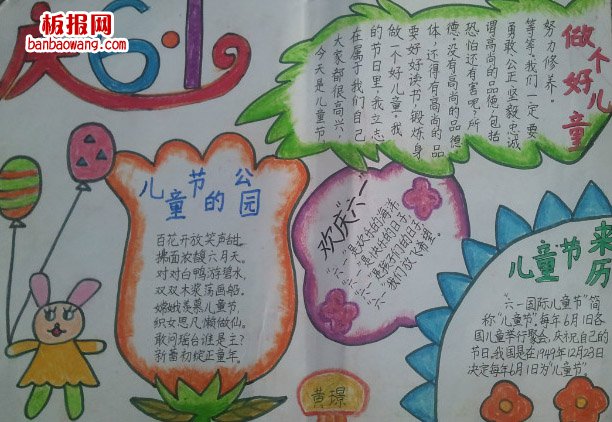 板报网
banbaowang.com
庆6·1
做个好儿童
今天是儿童节
大家都很高兴，
在属于我们自己
的节日里，我立志
做一个好儿童，我
要好好读书，锻炼身
体，还得有高尚的品
德，没有高尚的品德
恐怕还有害吧，所
谓高尚的品德，包括
勇敢公正坚毅忠诚
等等，我们一定要
努力修养。
儿童节的公园
百花开放笑声甜，
拂面浓馥六月天。
对对白鸭游碧水，
双双木桨荡画船。
嫦娥羡慕儿童节，
织女思凡懒做仙。
敢问瑶台谁是主？
新蕾初绽正童年。
欢庆“六一”
“六一”是欢乐的海洋
“六一”是快乐的日子
“六一”是孩子们的日子
“六一”我们放飞希望。
儿童节来历
“六一国际儿童节”简
称“儿童节”，每年6月1日各
国儿童举行聚会，庆祝自己的
节日，我国是在1949年12月23日
决定每年6月1日为“儿童节”
黄璟